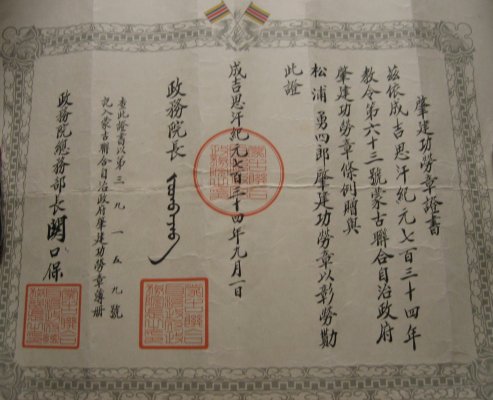 肇建功勞章證書
茲依成吉思汗紀元七百三十四年
教令第六十三號蒙古聯合自治政府
肇建功勞章條例贈與
松浦勇四郎肇建功勞章以彰勞勩
此證
成吉思汗紀元七百三十四年九月一日
政務院長
查此證書以第三九一五九號
記入蒙古聯合自治政府肇建功勞章簿冊
政務院總務部長 関口保